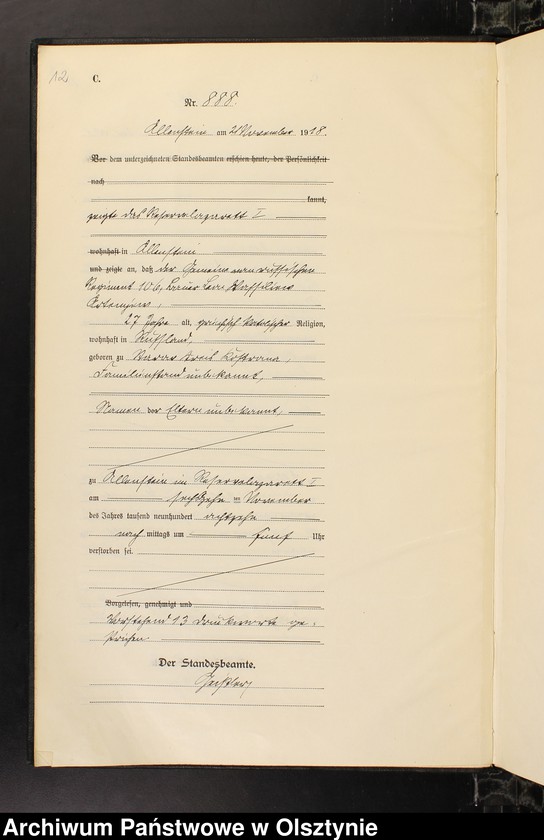 12.
C.
Nr. 888.
Allenstein am 21 November 1918.
Vor dem unterzeichneten Standesbeamten erschien heute, der Persönlichkeit
nach
kannt,
zeigte das Reservelazarett I
wohnhaft in Allenstein
und zeigte an, daß der Gemeine vom russischen
Regiment 106, Bauer Wassiliew
27 Jahre alt, griechisch katolischer Religion,
wohnhaft in Russland,
geboren zu Kreis Kostroma,
Familienstand unbekannt,
Namen der Eltern unbekannt,
zu Allenstein im Reservelazarett I
am sechszehn ten November
des Jahres tausend neunhundert achtzehn
nach mittags um fünf Uhr
verstorben sei.
Vorgelesen, genehmigt und
Vorstehend 13 Druckworte ge-
strichen.
Der Standesbeamte.
Archiwum Państwowe w Olsztynie